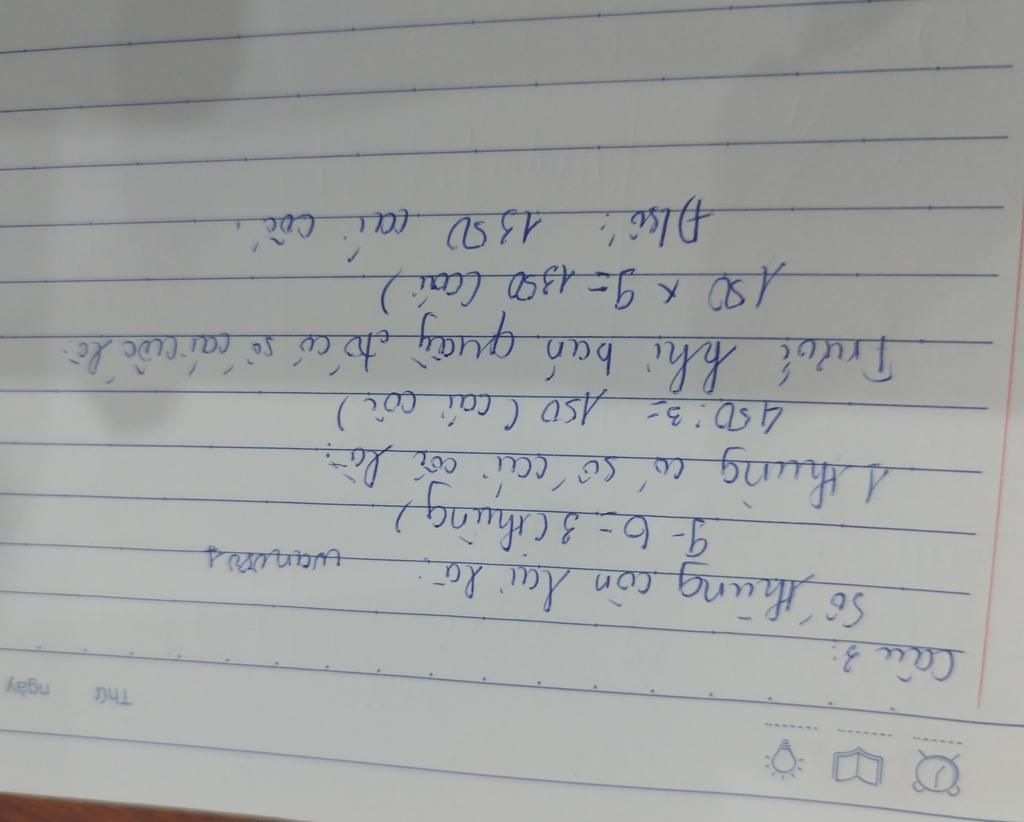 Thứ ngày
Câu 3:
Số thùng còn lại là: wancros
9 - 6 = 3 (thùng)
1 thùng có số cái cốc là:
450 : 3 = 150 (cái cốc)
Trước khi bán quầy đó có số cái cốc là:
150 x 9 = 1350 (cái)
Đ/số: 1350 cái cốc.